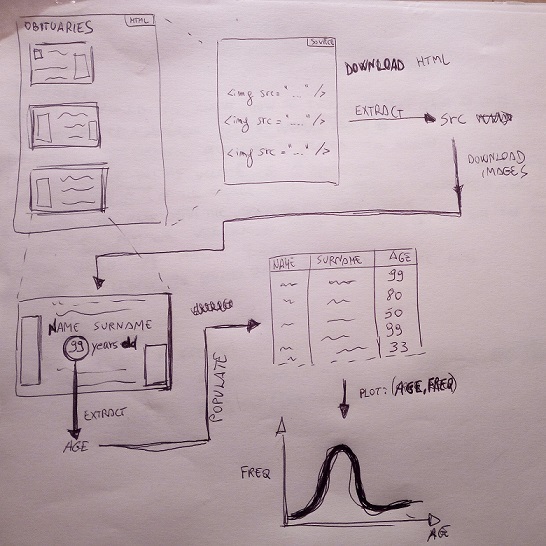 OBITUARIES
HTML
SOURCE
<img src="..." />
<img src="...." />
<img src="..." />
DOWNLOAD HTML
EXTRACT
src
DOWNLOAD
IMAGES
NAME SURNAME
99 years old
EXTRACT
AGE
POPULATE
NAME SURNAME AGE
99
80
50
99
33
PLOT: (AGE, FREQ)
FREQ
AGE